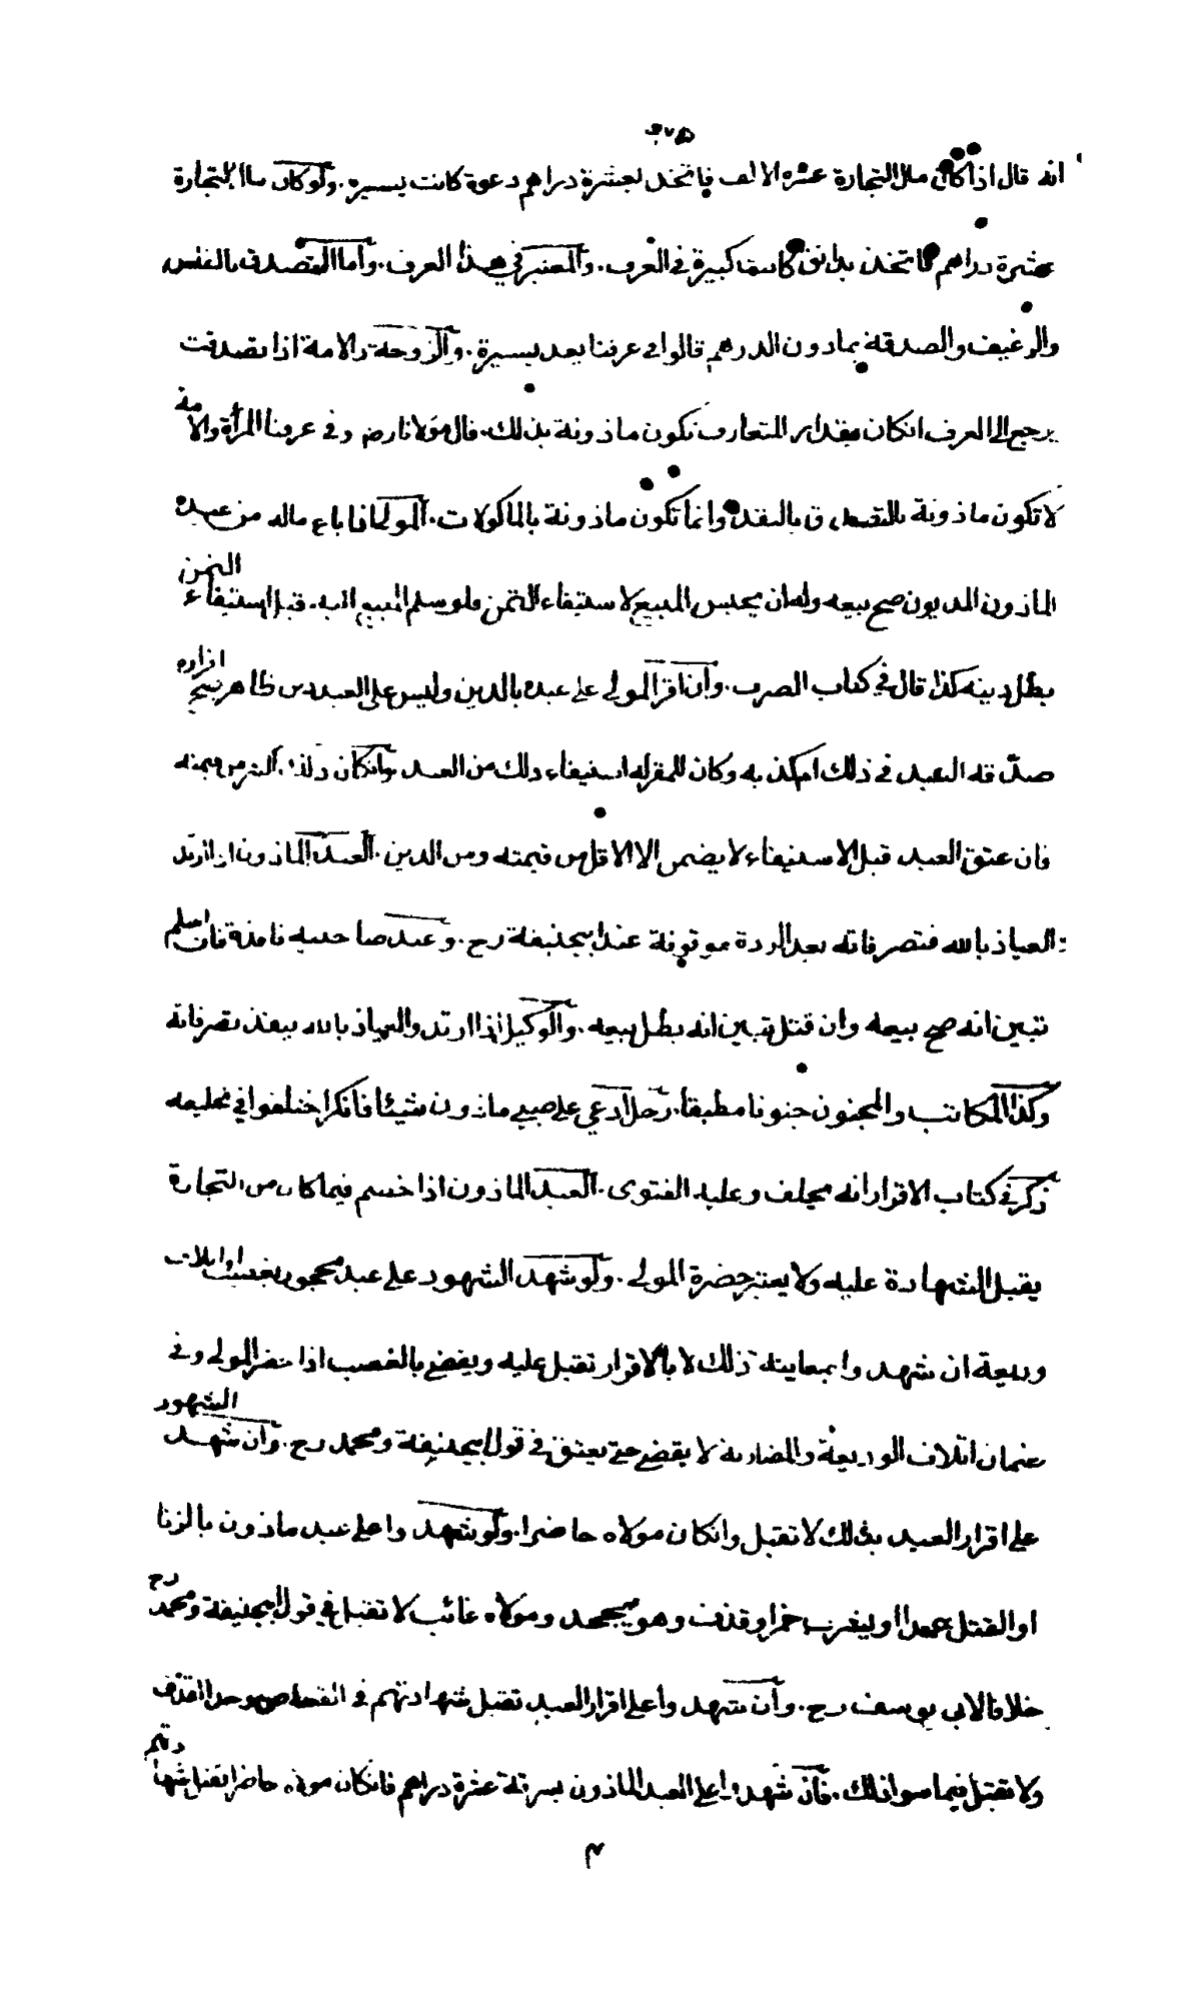 انه قال اذا كان مال التجارة عشرة الاف فاتخذ بعشرة دراهم دعوة كانت يسيرة. ولو كان مال التجارة
عشرة دراهم فاتخذ بدانق كانت كبيرة في العرف. والمعتبر في هذا العرف. واما التصدق بالفلس
والرغيف والصدقة بمادون الدرهم قالوا في عرفنا يعد يسيرة. والزوجة والامة اذا تصدقت
يرجع الى العرف انكان بمقدار المتعارف تكون ماذونة بذلك. قال مولانا رضـ وفي عرفنا المرأة والامة
لا تكون ماذونة بالتصدق بالنقد وانما تكون ماذونة بالماكولات. المولى اذا باع ماله من عبده
الماذون المديون صح بيعه وله ان يحبس المبيع لاستيفاء الثمن فلو سلم المبيع اليه. قبل استيفاء الثمن
بطل دينه كذا قال في كتاب الصرف. وان اقر المولى على عبده بالدين وليس على العبد دين ظاهر صح اقراره
صدقه العبد في ذلك ام كذبه وكان للمقر له استيفاء ذلك من العبد وان كان ذلك اكثر من قيمته
فان عتق العبد قبل الاستيفاء لا يضمن الا الاقل من قيمته ومن الدين. العبد الماذون اذا ارتد
العياذ بالله فتصرفاته بعد الردة موقوفة عند ابيحنيفة رح. وعند صاحبيه نافذة فان اسلم
تبين انه صح بيعه وان قتل تبين انه بطل بيعه. والوكيل اذا ارتد والعياذ بالله ينفذ تصرفاته
وكذا المكاتب والمجنون جنونا مطبقا. رجل ادعي على صبي ماذون شيئا فانكر اختلفوا في تحليفه
ذكر في كتاب الاقرار انه يحلف وعليه الفتوى. العبد الماذون اذا خصم فيما كان من التجارة
يقبل الشهادة عليه ولا يعتبر حضرة المولى. ولو شهد الشهود على عبد محجور بغصب او اتلاف
وديعة ان شهدوا بمعاينة ذلك لا بالاقرار تقبل عليه ويقضي بالغصب اذا حضر المولى وفي
ضمان اتلاف الوديعة والمضاربة لا يقضي حتى يعتق في قول ابيحنيفة ومحمد رح. وان شهد الشهود
على اقرار العبد بذلك لا تقبل وانكان مولاه حاضرا. ولو شهدوا على عبد ماذون بالزنا
او القتل عمدا او بشرب خمر او قذف وهو يجحد ومولاه غائب لا تقبل في قول ابيحنيفة ومحمد رح
خلافا لابي يوسف رح. وان شهدوا على اقرار العبد تقبل شهادتهم في القصاص وحد القذف
ولا تقبل فيما سوا ذلك. فان شهدوا على العبد الماذون بسرقة عشرة دراهم فانكان مولاه حاضرا تقبل شهادتهم